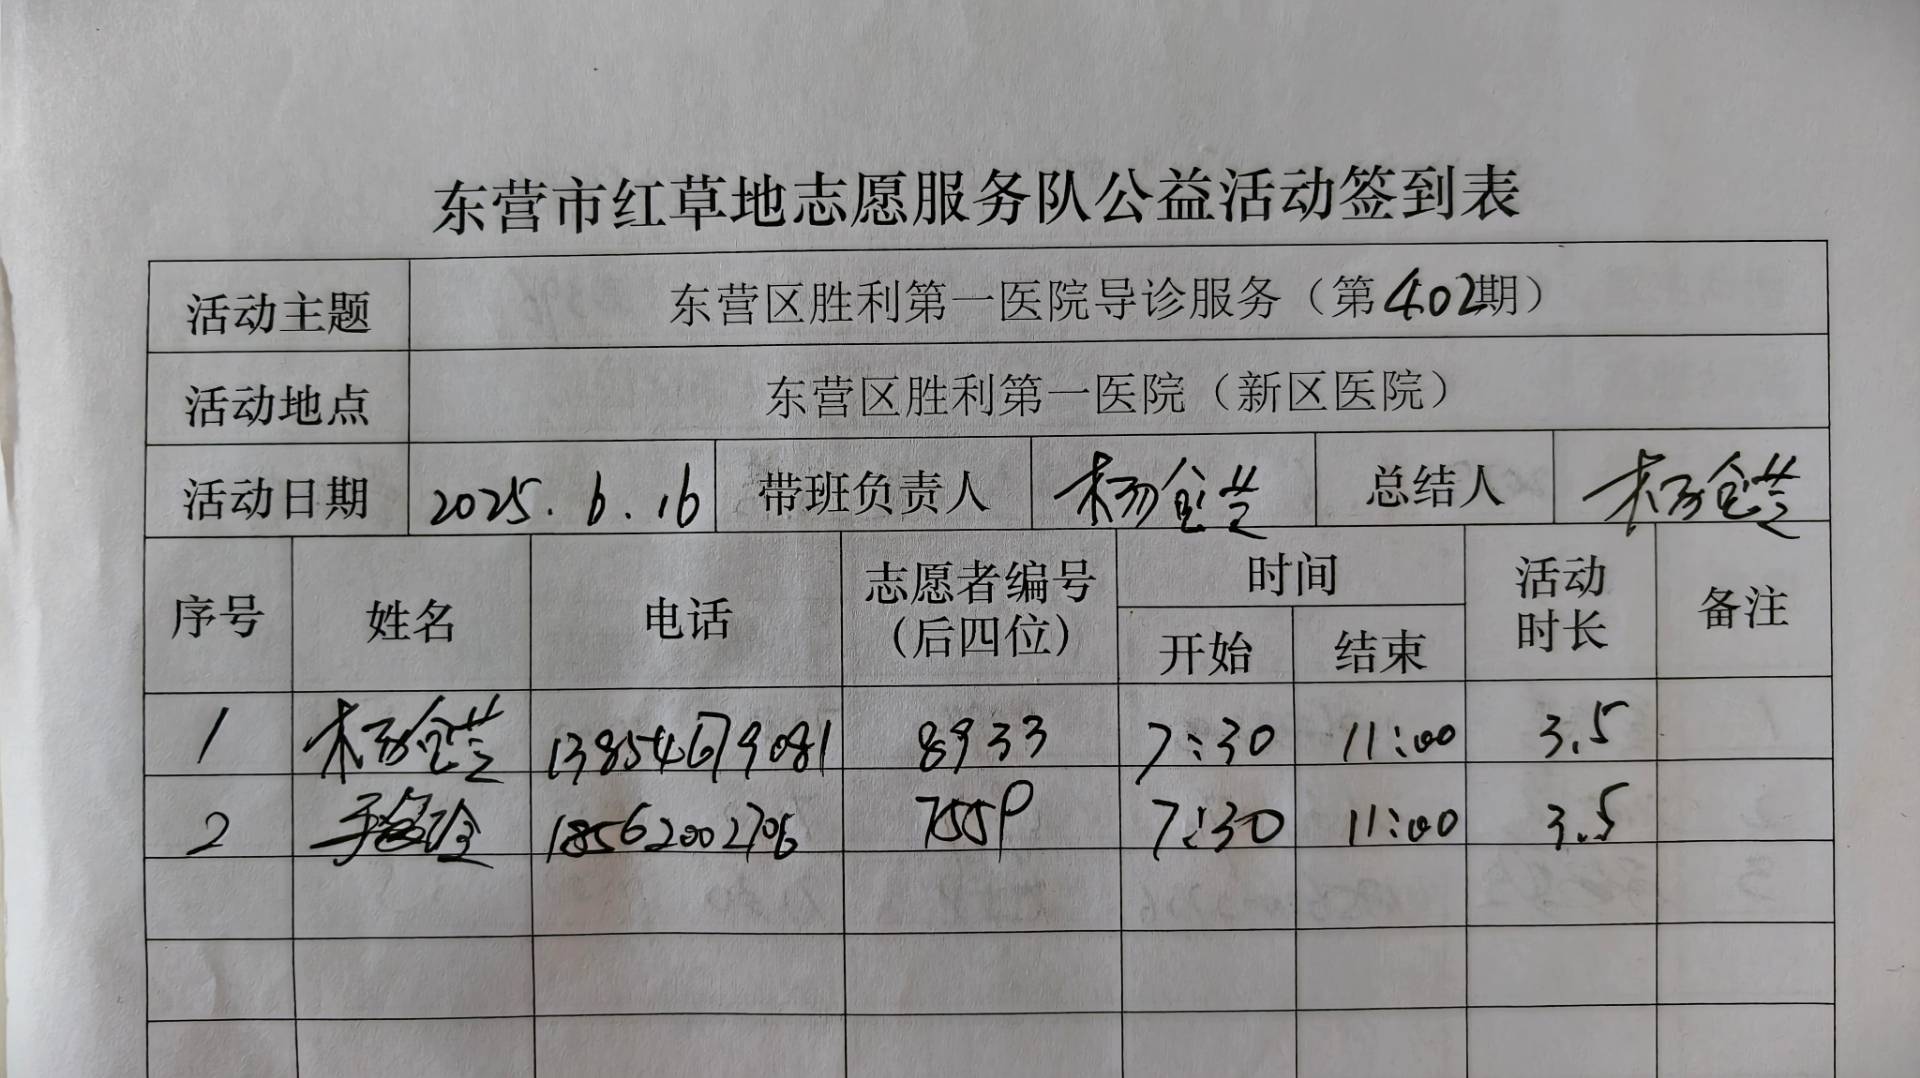 东营市红草地志愿服务队公益活动签到表
活动主题 东营区胜利第一医院导诊服务（第402期）
活动地点 东营区胜利第一医院（新区医院）
活动日期 2025.6.16 带班负责人 杨金芝 总结人 杨金芝
序号 姓名 电话 志愿者编号（后四位） 时间 开始 结束 活动时长 备注
1 杨金芝 13854679081 8933 7:30 11:00 3.5
2 18562002706 7559 7:30 11:00 3.5